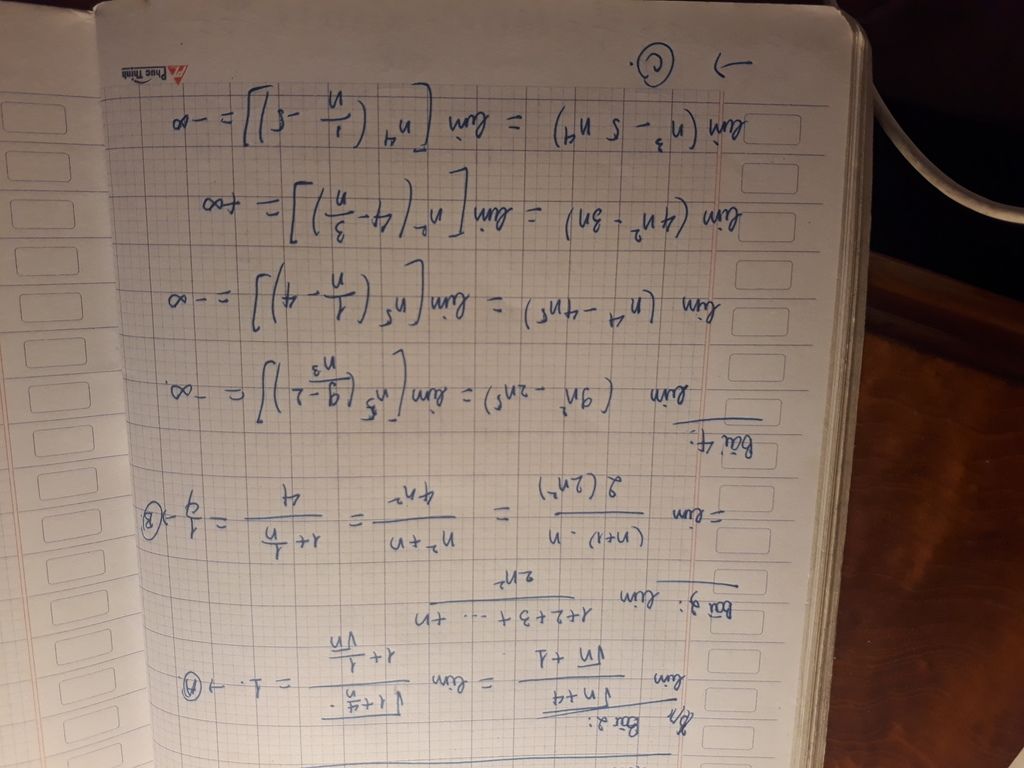 Bài 2:
lim √(n+4) / (√n + 1) = lim √(1 + 4/n) / (1 + 1/√n) = 1. → Ⓐ
Bài 3: lim (1+2+3+ ... +n) / 2n²
= lim (n+1).n / 2(2n²) = (n²+n) / 4n² = (1 + 1/n) / 4 = 1/4 → Ⓑ
Bài 4:
lim (9n² - 2n⁵) = lim [n⁵ (9/n³ - 2)] = -∞.
lim (n⁴ - 4n⁵) = lim [n⁵ (1/n - 4)] = -∞
lim (4n² - 3n) = lim [n² (4 - 3/n)] = +∞
lim (n³ - 5n⁴) = lim [n⁴ (1/n - 5)] = -∞
→ Ⓒ.
Phuc Thinh